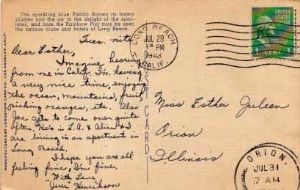 The sparkling blue Pacific throws its heavy
plumes into the air to the delight of the spec-
tator, and from the Rainbow Pier may be seen
the famous skyline and hotels of Long Beach.
LONG BEACH
JUL 28
PM
CALIF.
Tues. nite
Dear Esther,
Imagine hearing
from me in Calif. I'm having
a very nice time, enjoying
the ocean, mountains, fruit,
picking oranges, etc. Also
Joe gets to come over quite
often. He's in L.A. & Alice & I
are living in an apartment in
Long Beach.
I hope you are all
feeling fine, I'm fine.
With Love
CARD
Miss Esther Juleen
Orion
Illinois
ORION
JUL 31
7 AM